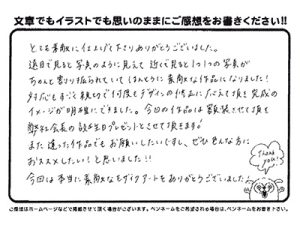 文章でもイラストでも思いのままにご感想をお書きください!!
とても素敵に仕上げて下さりありがとうございました。
遠目で見ると写真のように見えて近くで見ると1つ1つの写真が
ちゃんと割り振られていてほんとうに素敵な作品になりました!
対応もすごく親切で何度もデザインの作品に応えて頂き完成の
イメージが明確にできました。今回の作品は額装させて頂き
会長の誕生日プレゼントとさせて頂きます!
また違った作品でもお願いしたいですし、ぜひ色んな方に
おススメしたい!と思いました!!
今回は本当に素敵なモザイクアートをありがとうございました!
Thank you!
ご感想はホームページなどで掲載させて頂く場合がございます。ペンネームをご希望される場合は、ペンネームをお書き下さい。